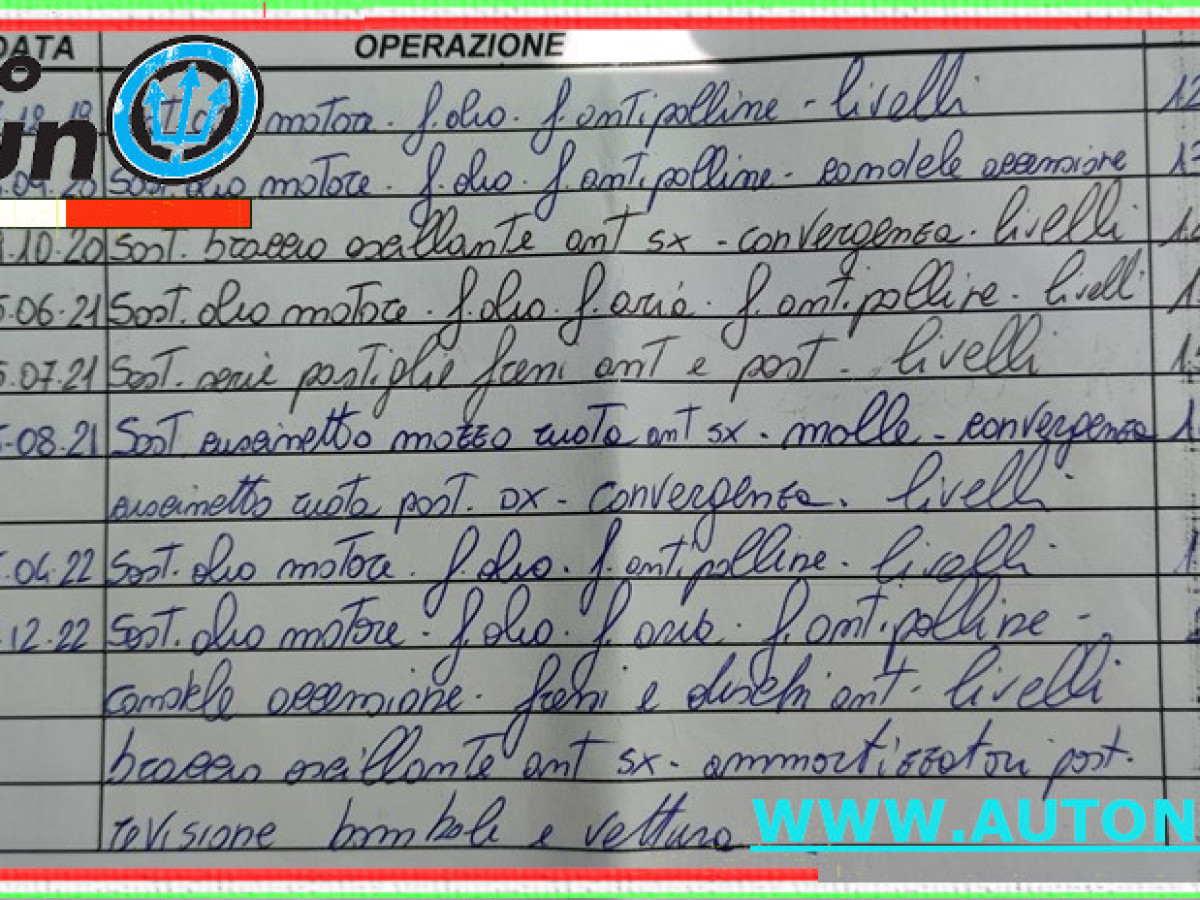 DATA OPERAZIONE
motore. f. olio. f. antipolline - livelli
.09.20 Sost. olio motore. f. olio. f. antipolline - candele accensione
.10.20 Sost. braccio oscillante ant sx - convergenza. livelli
5.06.21 Sost. olio motore. f. olio. f. aria. f. antipolline. livelli
5.07.21 Sost. serie pastiglie freni ant e post. livelli
.08.21 Sost. cuscinetto mozzo ruota ant sx. molle - convergenza
cuscinetto ruota post. DX - convergenza. livelli
.04.22 Sost. olio motore. f. olio. f. antipolline. livelli
.12.22 Sost. olio motore. f. olio. f. aria. f. antipolline -
candele accensione. freni e dischi ant. livelli
braccio oscillante ant sx. ammortizzatori post.
revisione bombole e vettura
WWW.AUTON